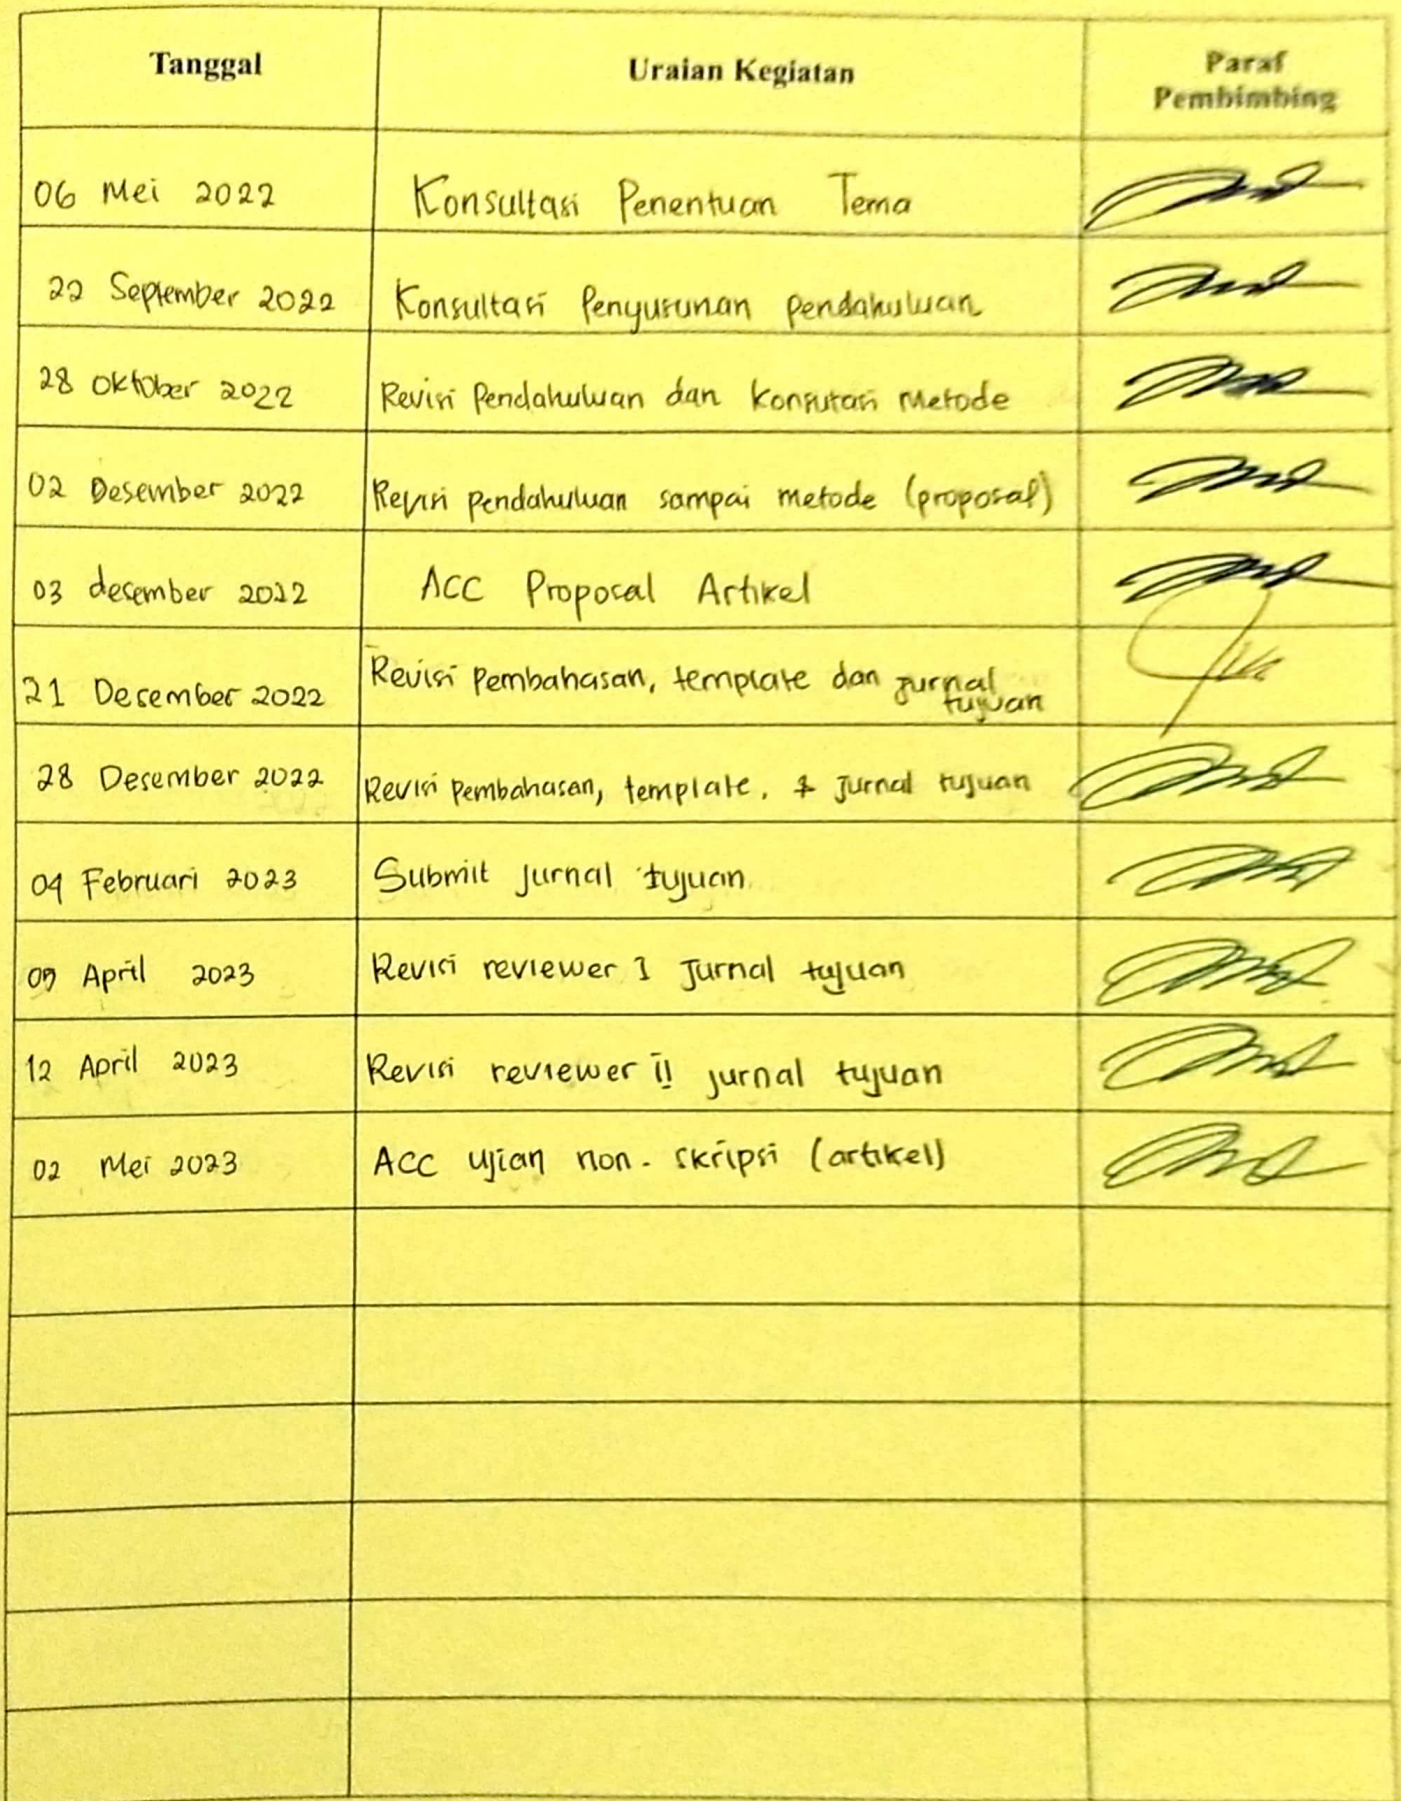 Tanggal Uraian Kegiatan Paraf
Pembimbing
06 Mei 2022 Konsultasi Penentuan Tema
22 September 2022 Konsultasi Penyusunan pendahuluan
28 Oktober 2022 Revisi Pendahuluan dan Konsutasi Metode
02 Desember 2022 Revisi pendahuluan sampai metode (proposal)
03 desember 2022 ACC Proposal Artikel
21 Desember 2022 Revisi Pembahasan, template dan jurnal
tujuan
28 Desember 2022 Revisi Pembahasan, template, & jurnal tujuan
04 Februari 2023 Submit jurnal tujuan
April 2023 Revisi reviewer I jurnal tujuan
12 April 2023 Revisi reviewer II jurnal tujuan
02 Mei 2023 ACC ujian non-skripsi (artikel)